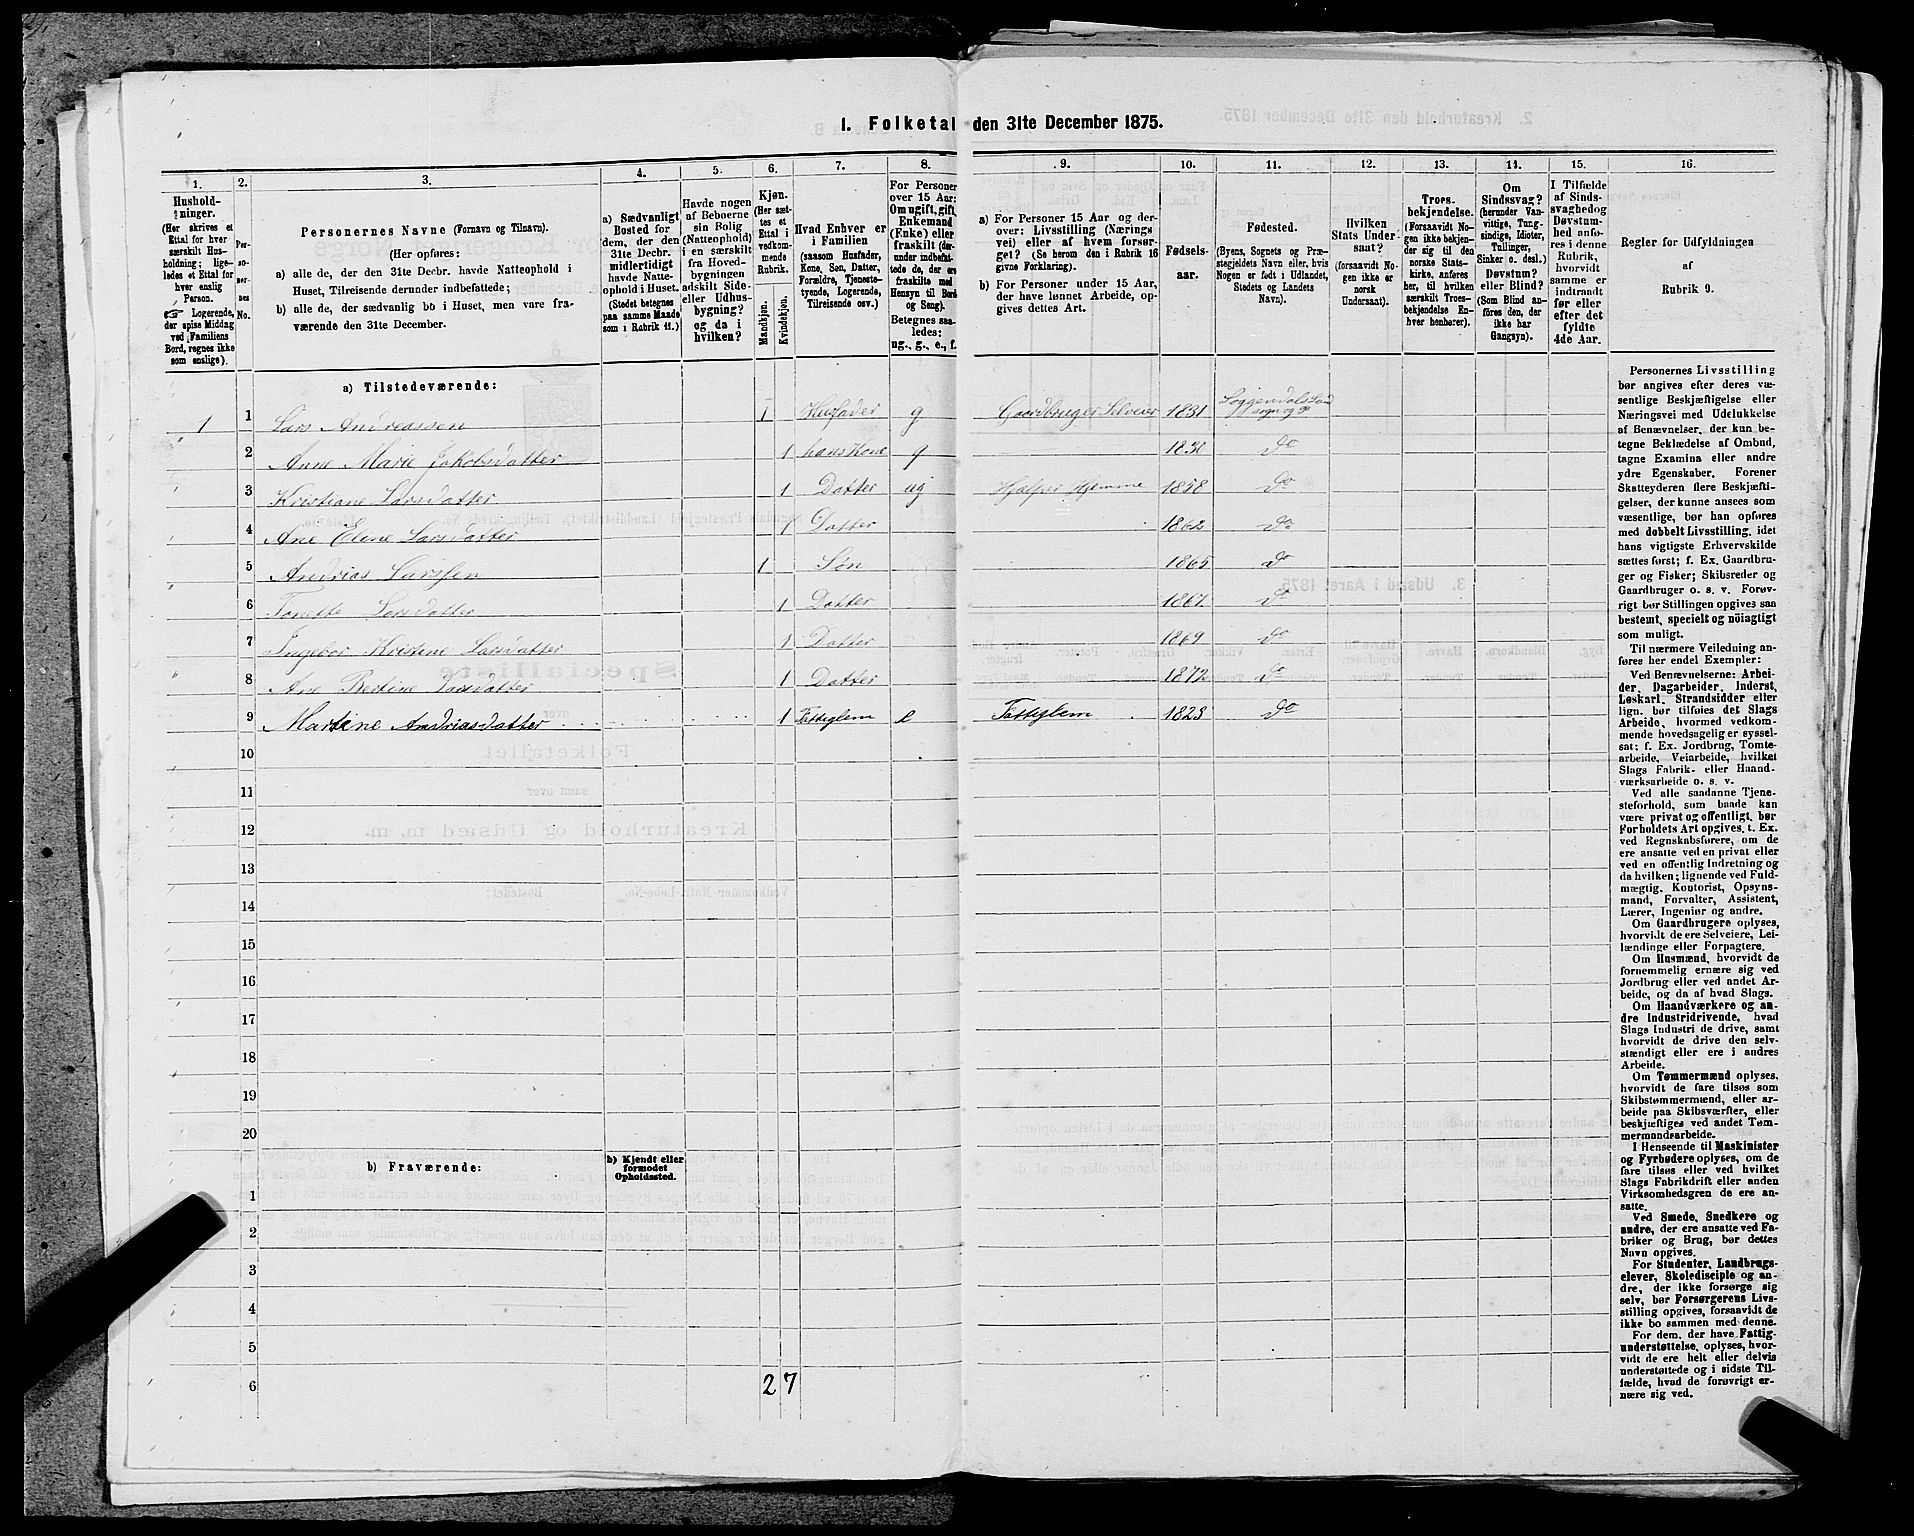 I. Folketal den 31te December 1875.
1. 2. 3. 4. 5. 6. 7. 8. 9. 10. 11. 12. 13. 14. 15. 16.
Hushold-
ninger.
(Her skrives et
Ettal for hver
særskilt Hus-
holdning; lige-
ledes et Ettal for
hver enslig
Person.
Logerende,
der spise Middag
ved Familiens
Bord, regnes ikke
som enslige).
Per-
so-
ner-
nes
No.
Personernes Navne (Fornavn og Tilnavn).
(Her opføres:
a) alle de, der den 31te Decbr. havde Natteophold i
Huset, Tilreisende derunder indbefattede;
b) alle de, der sædvanlig bo i Huset, men vare fra-
værende den 31te December.
a) Sædvanligt
Bosted for
dem, der den
31te Decbr.
midlertidigt
havde Natte-
ophold i Huset.
(Stedet betegnes
paa samme Maade
som i Rubrik 11.)
Havde nogen
af Beboerne
sin Bolig
(Natteophold)
i en særskilt
fra Hoved-
bygningen
adskilt Side-
eller Udhus-
bygning?
og da i
hvilken?
Kjøn.
(Her sæt-
tes et
Ettal i
vedkom-
mende
Rubrik.
Mandkjøn.
Kvindekjøn.
Hvad Enhver er
i Familien
(saasom Husfader,
Kone, Søn, Datter,
Forældre, Tjeneste-
tyende, Logerende,
Tilreisende osv.)
For Personer
over 15 Aar:
Om ugift, gift,
Enkemand
(Enke) eller
fraskilt (der-
under indbefat-
tede de, der ere
fraskilte med
Hensyn til Bord
og Seng).
Betegnes saa-
ledes:
ug., g., e., f.
a) For Personer 15 Aar og der-
over: Livsstilling (Nærings
vei) eller af hvem forsør-
get? (Se herom den i Rubrik 16
givne Forklaring).
b) For Personer under 15 Aar,
der have lønnet Arbeide, op-
gives dettes Art.
Fødsels-
aar.
Fødested.
(Byens, Sognets og Præ-
stegjeldets Navn eller, hvis
Nogen er født i Udlandet,
Stedets og Landets
Navn).
Hvilken
Stats Under-
saat?
(forsaavidt No-
gen ikke er
norsk
Undersaat).
Troes-
bekjendelse.
(Forsaavidt No-
gen ikke bekjen-
der sig til den
norske Stats-
kirke, anføres
her, til hvilken
særskilt Troes-
bekjendelse En-
hver henhører).
Om
Sindssvag?
(herunder Van-
vittige, Tung-
sindige, Idioter,
Tullinger,
Sinker o. desl.)
Døvstum?
eller Blind?
(Som Blind an-
føres den, der
ikke har
Gangsyn).
I Tilfælde
af Sinds-
svaghed og
Døvstum-
hed anfø-
res i denne
Rubrik,
hvorvidt
samme er
indtraadt
før eller
efter det
fyldte
4de Aar.
Regler for Udfyldningen
af
Rubrik 9.
a) Tilstedeværende:
1 1 Lars Andreassen 1 Husfader g Gaardbruger Selveier 1831 Soggendals Land sogn og P
" 2 Anne Marie Jakobsdatter 1 hans Kone g 1830 do
3 Kristiane Larsdatter 1 Datter ug Hjælper Hjemme 1858 do
4 Ane Elene Larsdatter 1 Datter 1862 do
5 Andrias Larssen 1 Søn 1865 do
6 Tonette Larsdatter 1 Datter 1867 do
7 Ingebor Kristine Larsdatter 1 Datter 1869 do
8 Ane Bertine Larsdatter 1 Datter 1872 do
9 Martine Andriasdatter 1 Fattiglem e Fattiglem 1823 do
10
11
12
13
14
15
16
17
18
19
20
b) Fraværende:
b) Kjendt eller
formodet
Opholdssted.
1
2
3
4
5
6
2 7
Personernes Livsstilling
bør angives efter deres væ-
sentlige Beskjæftigelse eller
Næringsvei med Udelukkelse
af Benævnelser, der kun be-
tegne Beklædelse af Ombud,
tagne Examina eller andre
ydre Egenskaber. Forener
Skatteyderen flere Beskjæfti-
gelser, der kunne ansees som
væsentlige, bør han opføres
med dobbelt Livsstilling, idet
hans vigtigste Erhvervskilde
sættes først; f. Ex. Gaardbru-
ger og Fisker; Skibsreder og
Gaardbruger o. s. v. Forøv-
rigt bør Stillingen opgives saa
bestemt, specielt og nöiagtigt
som muligt.
Til nærmere Veiledning an-
føres her endel Exempler:
Ved Benævnelserne: Arbei-
der, Dagarbeider, Inderst,
Løskarl, Strandsidder eller
lign. bør tilføies det Slags
Arbeide, hvormed vedkom-
mende hovedsagelig er syssel-
sat; f. Ex. Jordbrug, Tomte-
arbeide, Veiarbeide, hvilket
Slags Fabrik- eller Haand-
værksarbeide o. s. v.
Ved alle saadanne Tjene-
steforhold, som baade kan
være privat og offentligt, bør
Forholdets Art opgives, t. Ex.
ved Regnskabsførere, om de
ere ansatte ved en privat eller
ved en offentlig Indretning og
da hvilken; lignende ved Fuld-
mægtig, Kontorist, Opsyns-
mand, Forvalter, Assistent,
Lærer, Ingeniør og andre.
Om Gaardbrugere oplyses,
hvorvidt de ere Selveiere, Lei-
lændinge eller Forpagtere.
Om Husmænd, hvorvidt de
fornemmelig ernære sig ved
Jordbrug eller ved andet Ar-
beide, og da af hvad Slags.
Om Haandværkere og an-
dre Industridrivende, hvad
Slags Industri de drive, samt
hvorvidt de drive den selv-
stændigt eller ere i andres
Arbeide.
Om Tømmermænd oplyses,
hvorvidt de fare tilsøs som
Skibstømmermænd, eller ar-
beide paa Skibsværfter, eller
beskjæftiges ved andet Tøm-
mermandsarbeide.
I Henseende til Maskinister
og Fyrbødere oplyses, om de
fare tilsøs eller ved hvilket
Slags Fabrikdrift eller anden
Virksomhedsgren de ere an-
satte.
Ved Smede, Snedkere og
andre, der ere ansatte ved Fa-
briker og Brug, bør dettes
Navn opgives.
For Studenter, Landbrugs-
elever, Skoledisciple og an-
dre, der ikke forsørge sig
selv, bør Forsørgerens Livs-
stilling opgives, forsaavidt de
ikke bo sammen med denne.
For dem, der have Fattig-
understøttelse, oplyses, hvor-
vidt de ere helt eller delvis
understøttede og i sidste Til-
fælde, hvad de forøvrigt er-
nære sig ved.